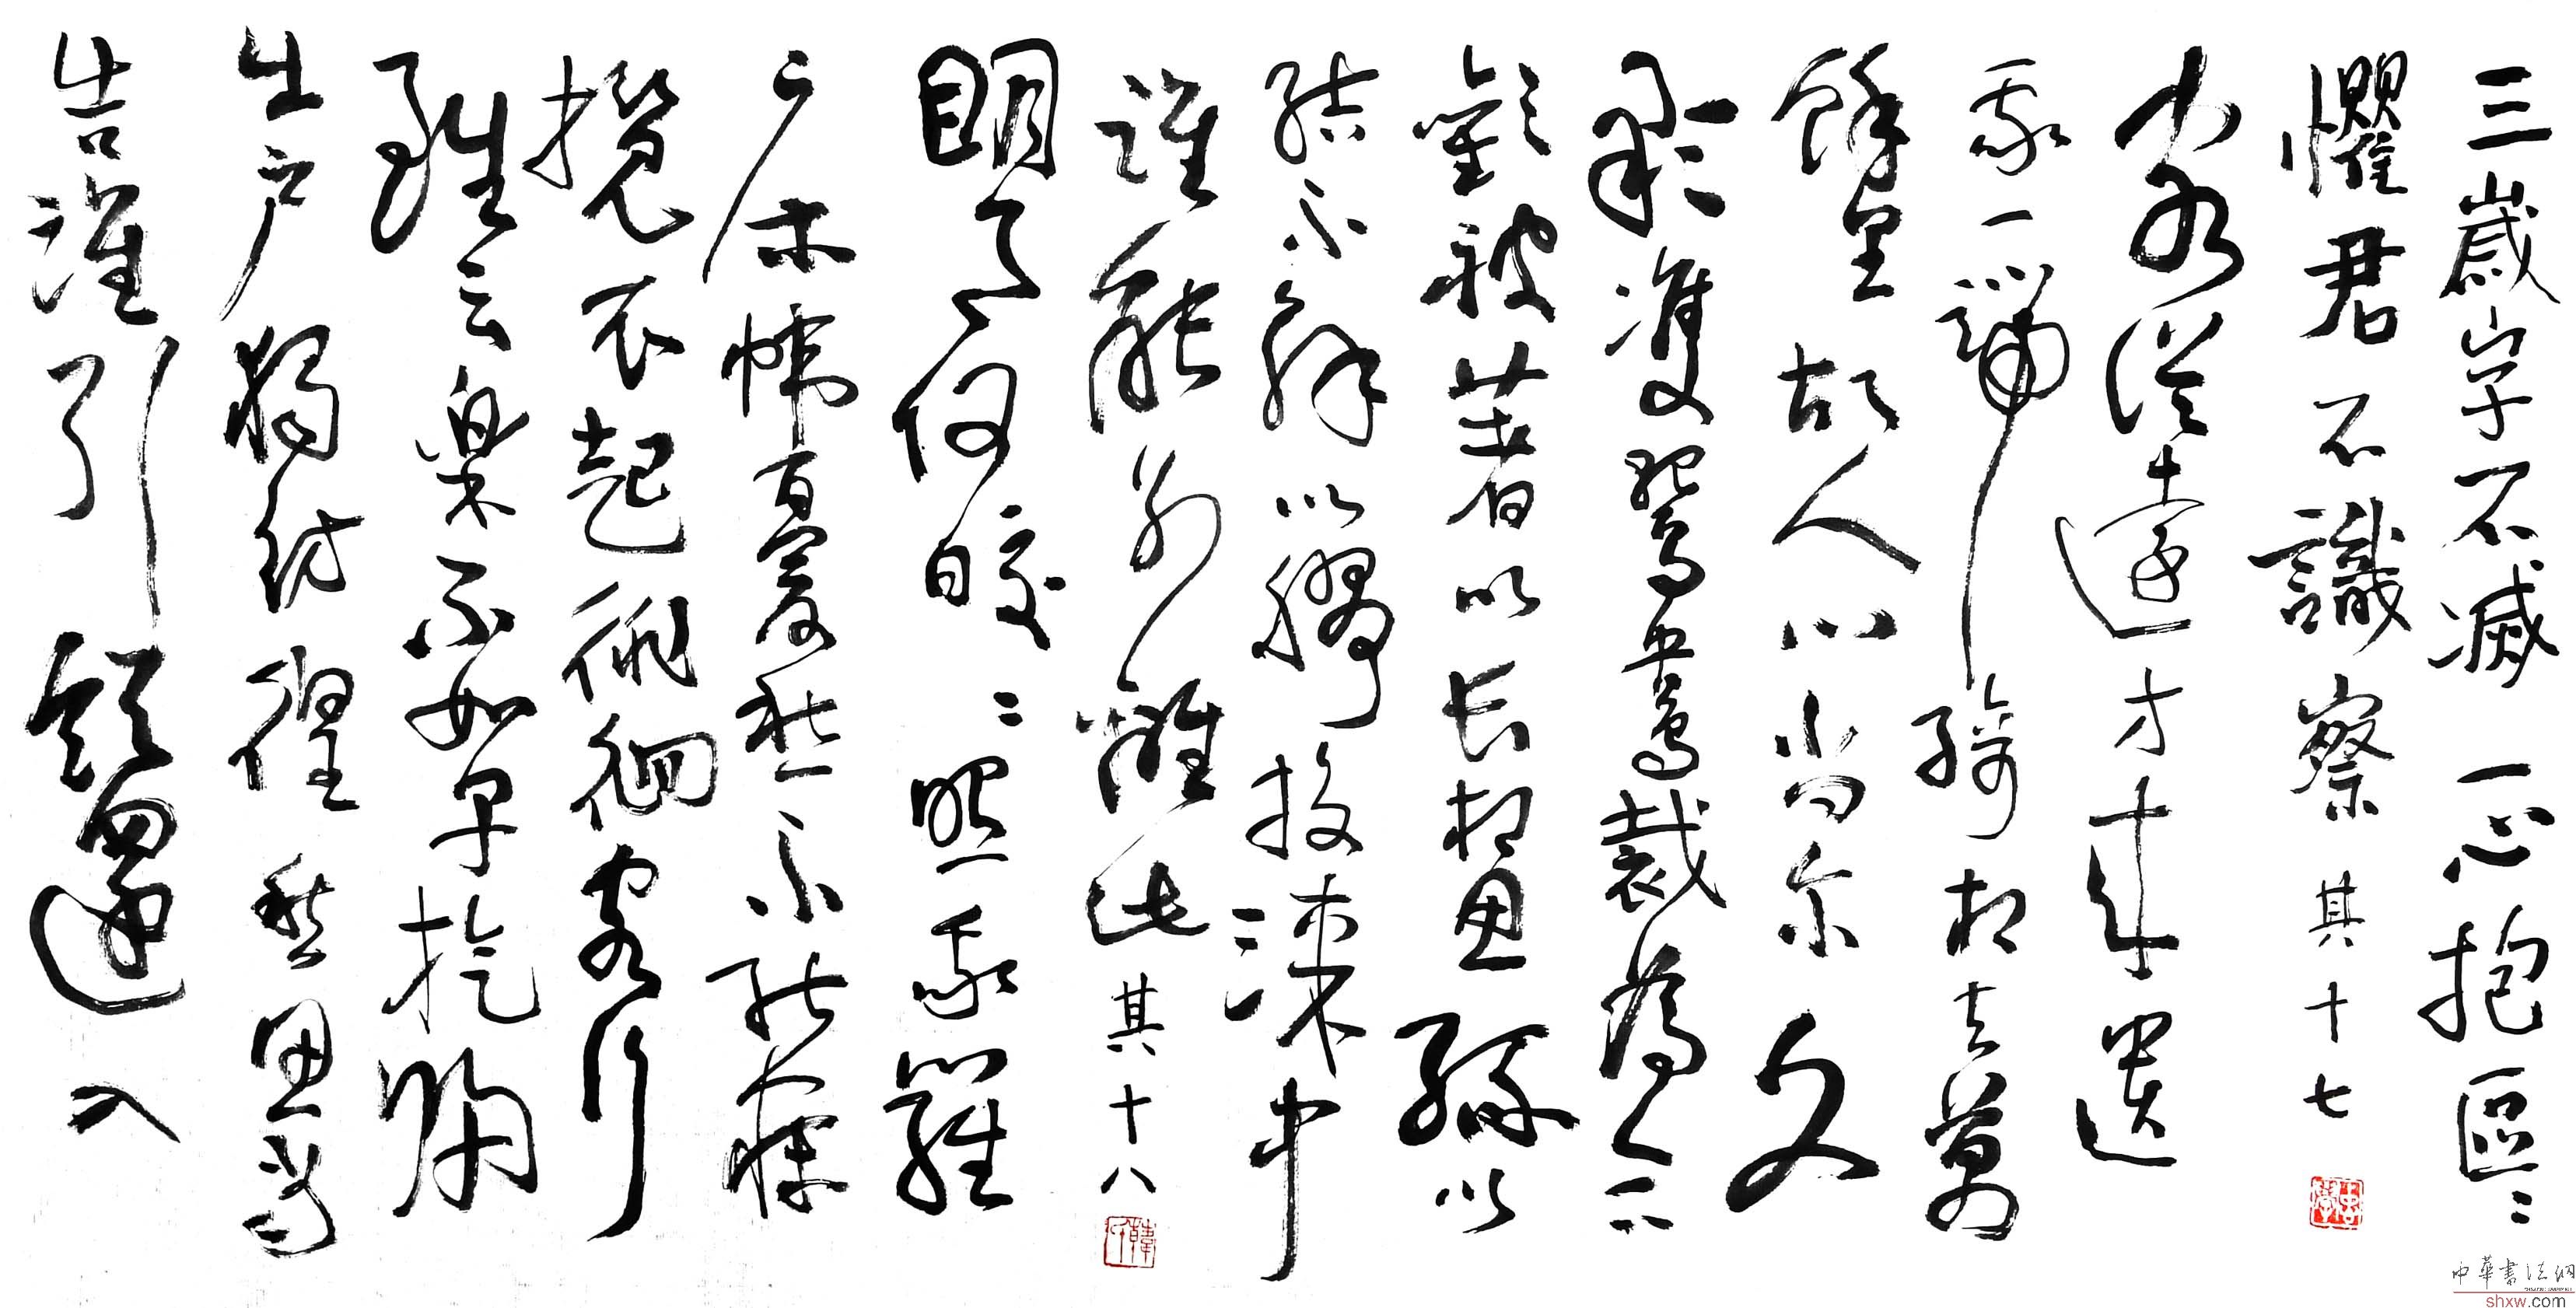 三歲字不滅一心抱區〻
懼君不識察其十七
客從遠方来遺
我一端綺相去萬
餘里故人心尚尔文
彩雙鴛鴦裁為合
歡被著以長相思緣以
結不解以膠投漆中
誰能別離此其十八
明月何皎〻照我羅
床幃憂愁不能寐
攬衣起徘徊客行
雖云樂不如早旋歸
出戶獨彷徨愁思當
告誰引領還入
中華書法網
shxw.com